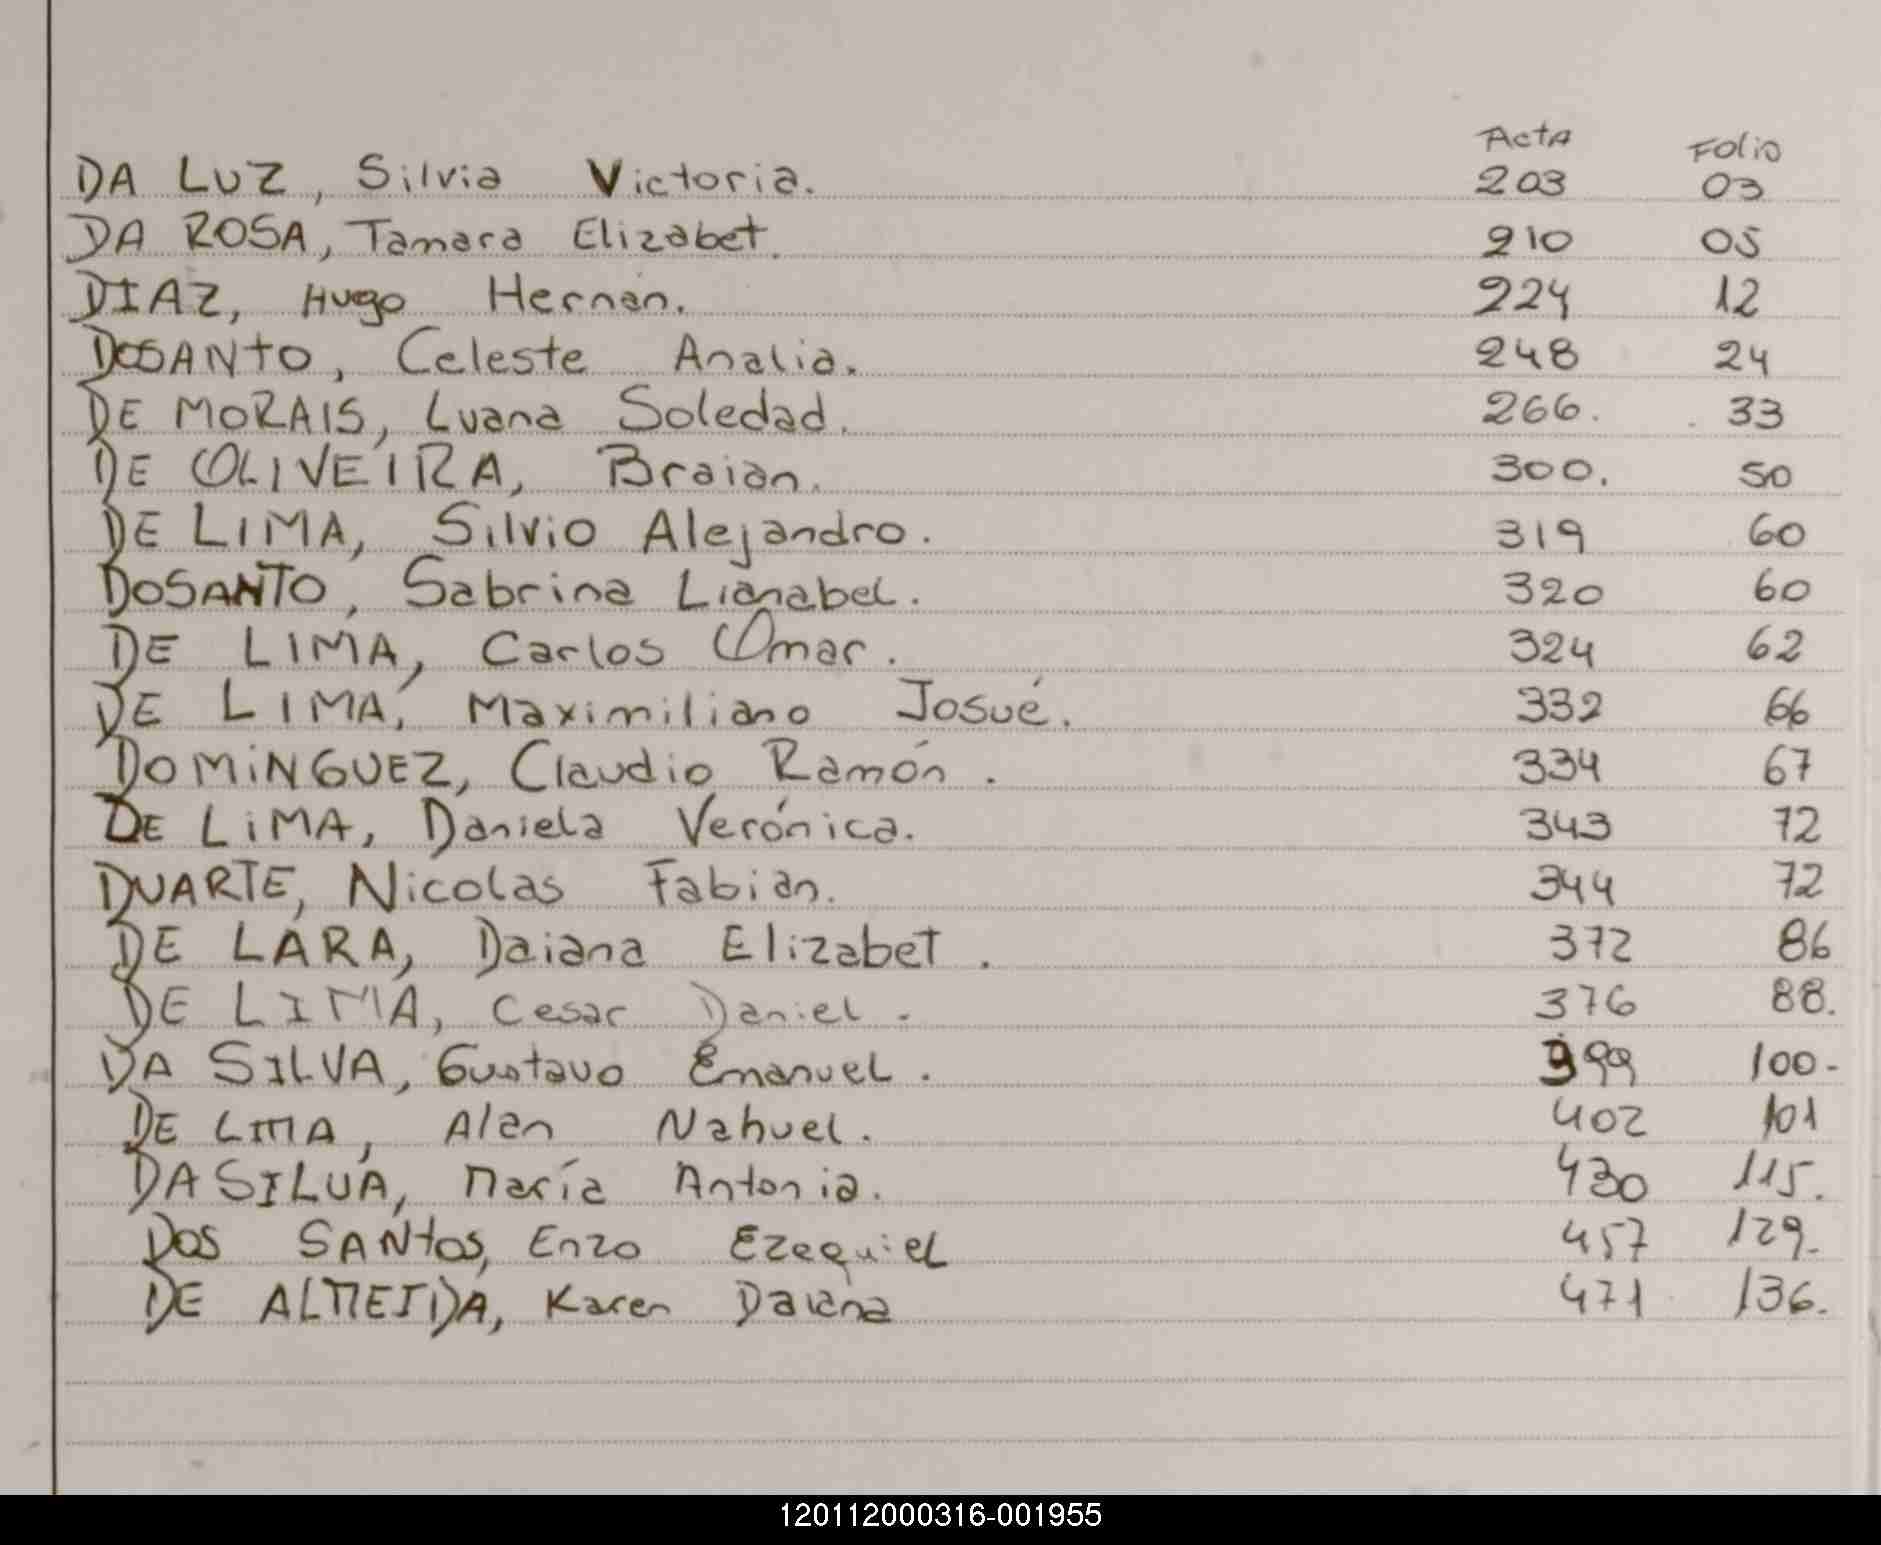 Acta Folio
DA LUZ, Silvia Victoria. 203 03
DA ROSA, Tamara Elizabet. 210 05
DIAZ, Hugo Hernan. 224 12
DOSANTO, Celeste Analia. 248 24
DE MORAIS, Luana Soledad. 266. 33
DE OLIVEIRA, Braian. 300. 50
DE LIMA, Silvio Alejandro. 319 60
DOSANTO, Sabrina Lianabel. 320 60
DE LIMA, Carlos Omar. 324 62
DE LIMA, Maximiliano Josué. 332 66
DOMINGUEZ, Claudio Ramón. 334 67
DE LIMA, Daniela Verónica. 343 72
DUARTE, Nicolas Fabian. 344 72
DE LARA, Daiana Elizabet. 372 86
DE LIMA, Cesar Daniel. 376 88.
DA SILVA, Gustavo Emanuel. 399 100-
DE LIMA, Alan Nahuel. 402 101
DA SILVA, María Antonia. 430 115.
DOS SANTOS, Enzo Ezequiel 457 129.
DE ALMEIDA, Karen Daiana 471 136.
120112000316-001955